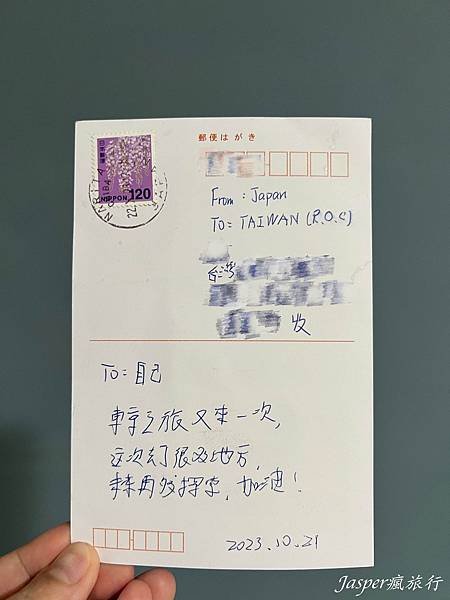 郵便はがき
日本郵便
NIPPON 120
NARITA
CHIBA
22.
From : Japan
To = TAIWAN (R.O.C)
台灣
收
To = 自己
東京之旅又來一次,
這次去了很多地方,
未來再繼續探索, 加油!
2023.10.21
Jasper瘋旅行